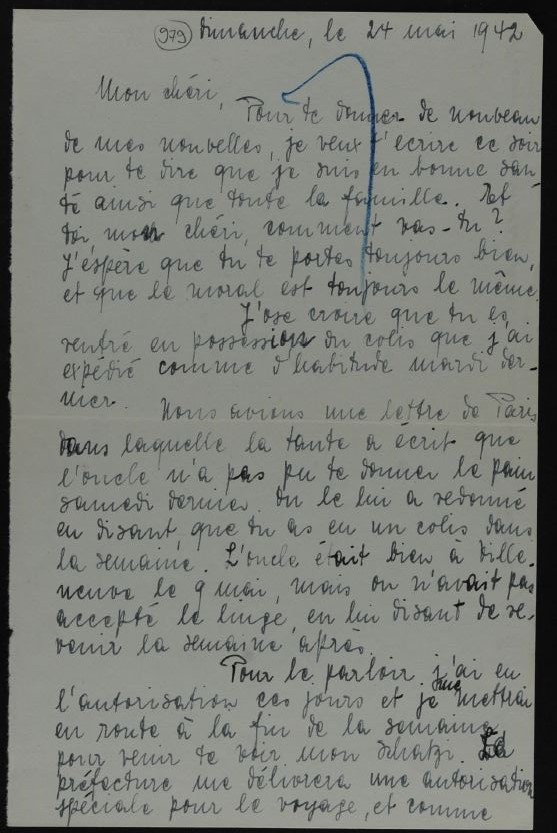 979 dimanche, le 24 mai 1942
Mon chéri,
Pour te donner de nouveau
de mes nouvelles, je veux t'écrire ce soir
pour te dire que je suis en bonne san-
té ainsi que toute la famille. Et
toi mon chéri, comment vas-tu?
J'espère que tu te portes toujours bien,
et que le moral est toujours le même.
J'ose croire que tu es
rentré en possession du colis que j'ai
expédié comme d'habitude mardi der-
nier. Nous avions une lettre de Paris
dans laquelle la tante a écrit que
l'oncle n'a pas pu te donner le pain
samedi dernier. On le lui a redonné
en disant, que tu as eu un colis dans
la semaine. L'oncle était bien à Ville-
neuve le 9 mai, mais on n'avait pas
accepté le linge, en lui disant de re-
venir la semaine après.
Pour le parloir j'ai eu
l'autorisation ces jours et je me mettrai
en route à la fin de la semaine
pour venir te voir mon Schatzi. La
préfecture me délivrera une autorisation
spéciale pour le voyage, et comme